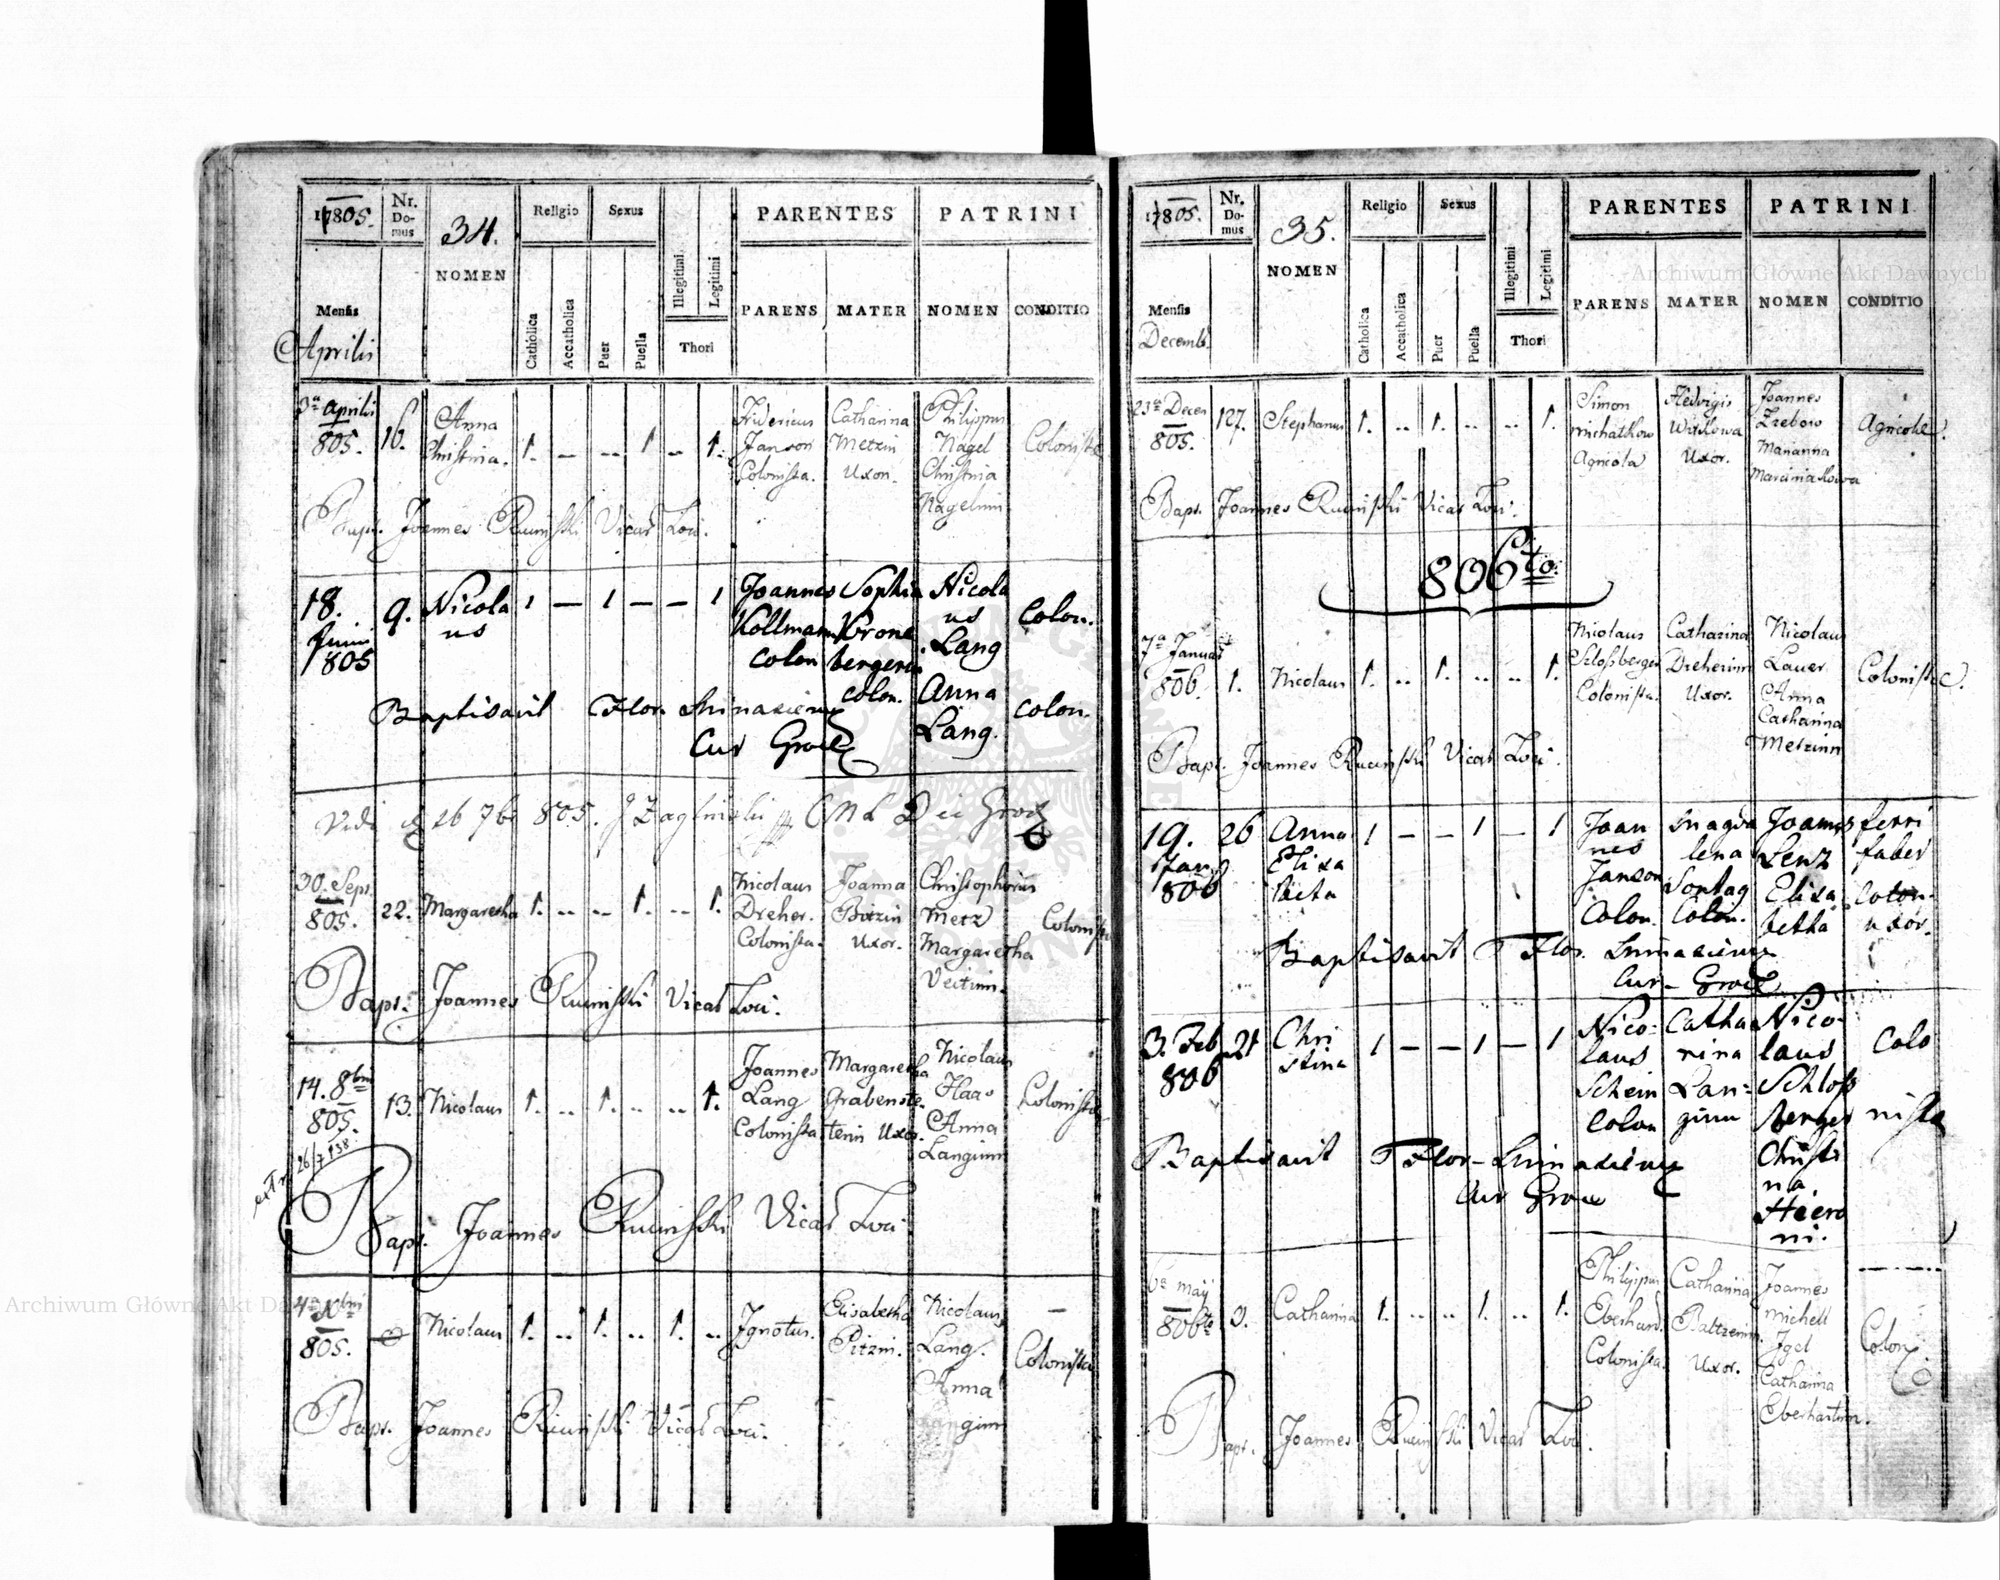 17805.
Nr. Domus
34.
NOMEN
Religio
Sexus
PARENTES
PATRINI
Mensis
Aprilis
Catholica
Accatholica
Puer
Puella
Illegitimi
Legitimi
Thori
PARENS
MATER
NOMEN
CONDITIO
3a Aprilis
805.
16.
Anna
Christina.
1. — .. 1 .. 1.
Fridericus
Janson
Colonista.
Catharina
Metzin
Uxor.
Philippus
Nagel
Christina
Nagelinn
Colonistae
Bapt. Joannes Rucinski Vicar Loci.
18.
Junii
805
9.
Nicola
us
1 — 1 — — 1
Joannes
Kollmann
Colon
Sophia
Krone
bergerin
colon.
Nicola
us
Lang
Anna
Lang.
Colon.
colon.
Baptisavit Flor.
Cur
Vidi 16 7br 805.
30. Sept.
805.
22.
Margaretha
1. .. .. 1. .. 1.
Nicolaus
Dreher.
Colonista.
Joanna
Uxor.
Christophorus
Metz
Margaretha
Veitinn.
Colonista
Bapt. Joannes Rucinski Vicar Loci.
14. 8bris
805.
13.
Nicolaus
1. .. 1. .. .. 1.
Joannes
Lang
Colonista
Margaretha
Grabenste
tenin Uxor.
Nicolaus
Haas
Anna
Langinn
Colonista
extr. 26/7 938
Bapt. Joannes Rucinski Vicar Loci
4a Xbris
805.
Nicolaus
1. .. 1. .. 1. ..
Ignotus.
Elisabetha
Pitzin.
Nicolaus
Lang.
Anna
Langinn
Colonista
Bapt. Joannes Rucinski Vicar Loci.
17805.
Nr. Domus
35.
NOMEN
Religio
Sexus
PARENTES
PATRINI
Mensis
Decemb.
Catholica
Accatholica
Puer
Puella
Illegitimi
Legitimi
Thori
PARENS
MATER
NOMEN
CONDITIO
23a Decem
805.
127.
Stephanus
1. .. 1. .. .. 1.
Simon
Agricola
Hedvigis
Uxor.
Joannes
Marianna
Marciniakowa
Agricolae.
Bapt. Joannes Rucinski Vicar Loci.
806to.
7a Januar
806.
1.
Nicolaus
1. .. 1. .. .. 1.
Nicolaus
Szlossberger
Colonista.
Catharina
Dreherinn
Uxor.
Nicolaus
Lauer
Anna
Catharina
Metzinn
Colonistae.
Bapt. Joannes Rucinski Vicar Loci.
19.
Jan
806
26
Anna
Elisa
beta
1 — — 1 — 1
Joan
nes
Janson
Colon.
Magda
lena
Sontag
Colon.
Joannes
Lenz
Elisa
betha
ferri
faber
Colon.
uxor.
Baptisavit Flor.
Cur
3. Feb
806
21
Chri
stina
1 — — 1 — 1
Nico-
laus
Schein
Colon
Catha
rina
Lan-
ginn
Nico-
laus
Schloss
berger
Christi
na
Hiero
ni.
Colo
nista
Baptisavit Flor
Cur
6a May
806to
3.
Catharina
1. .. .. 1. .. 1.
Philippus
Eberhard.
Colonista.
Catharina
Baltzerinn.
Uxor.
Joannes
Michell
Igel
Catharina
Eberhartin.
Colon
Bapt. Joannes Rucinski Vicar Loci.
Archiwum Główne Akt Dawnych
Archiwum Główne Akt Dawnych